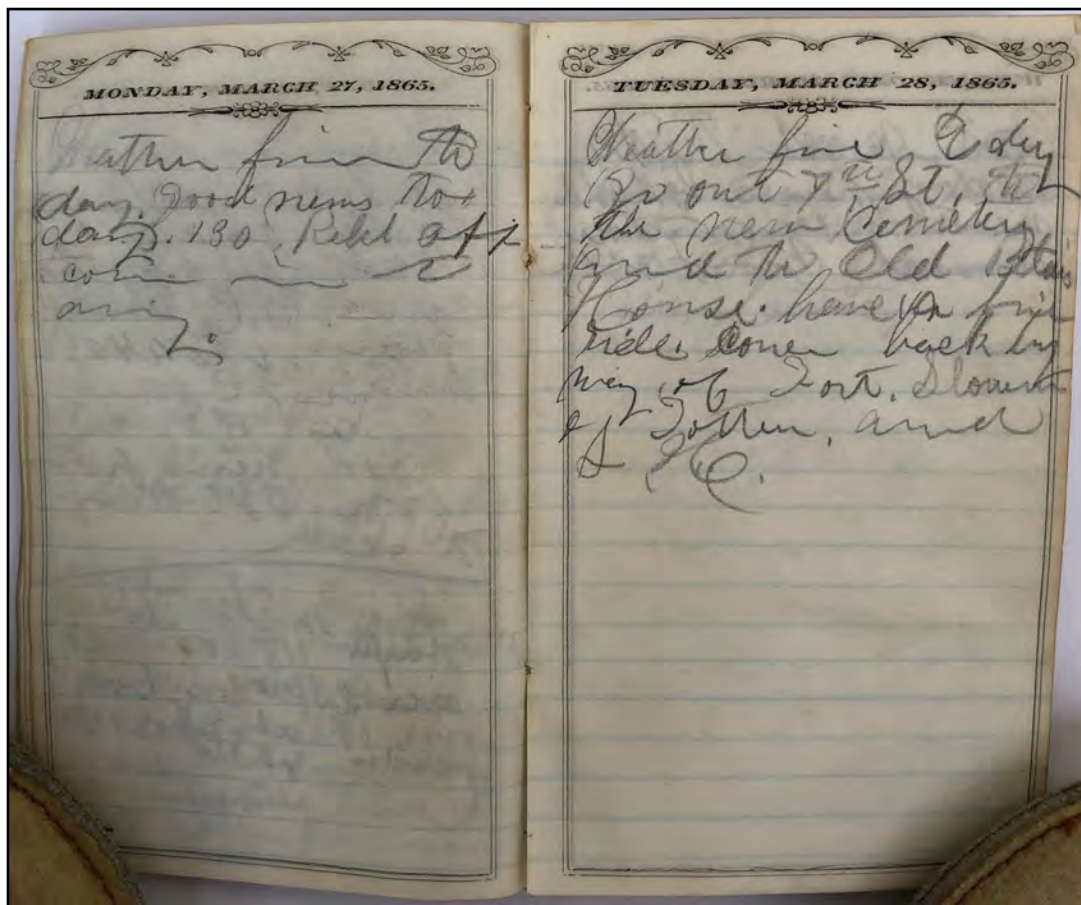 MONDAY, MARCH 27, 1865.
Weather fine to
day. Good news to
day. 130 Rebel off
come in
TUESDAY, MARCH 28, 1865.
Weather fine to day
Go out 7th St. to
the new Cemetery
and the Old
House. have a fine
ride. Come back by
way of Fort. Slocum
Totten. and